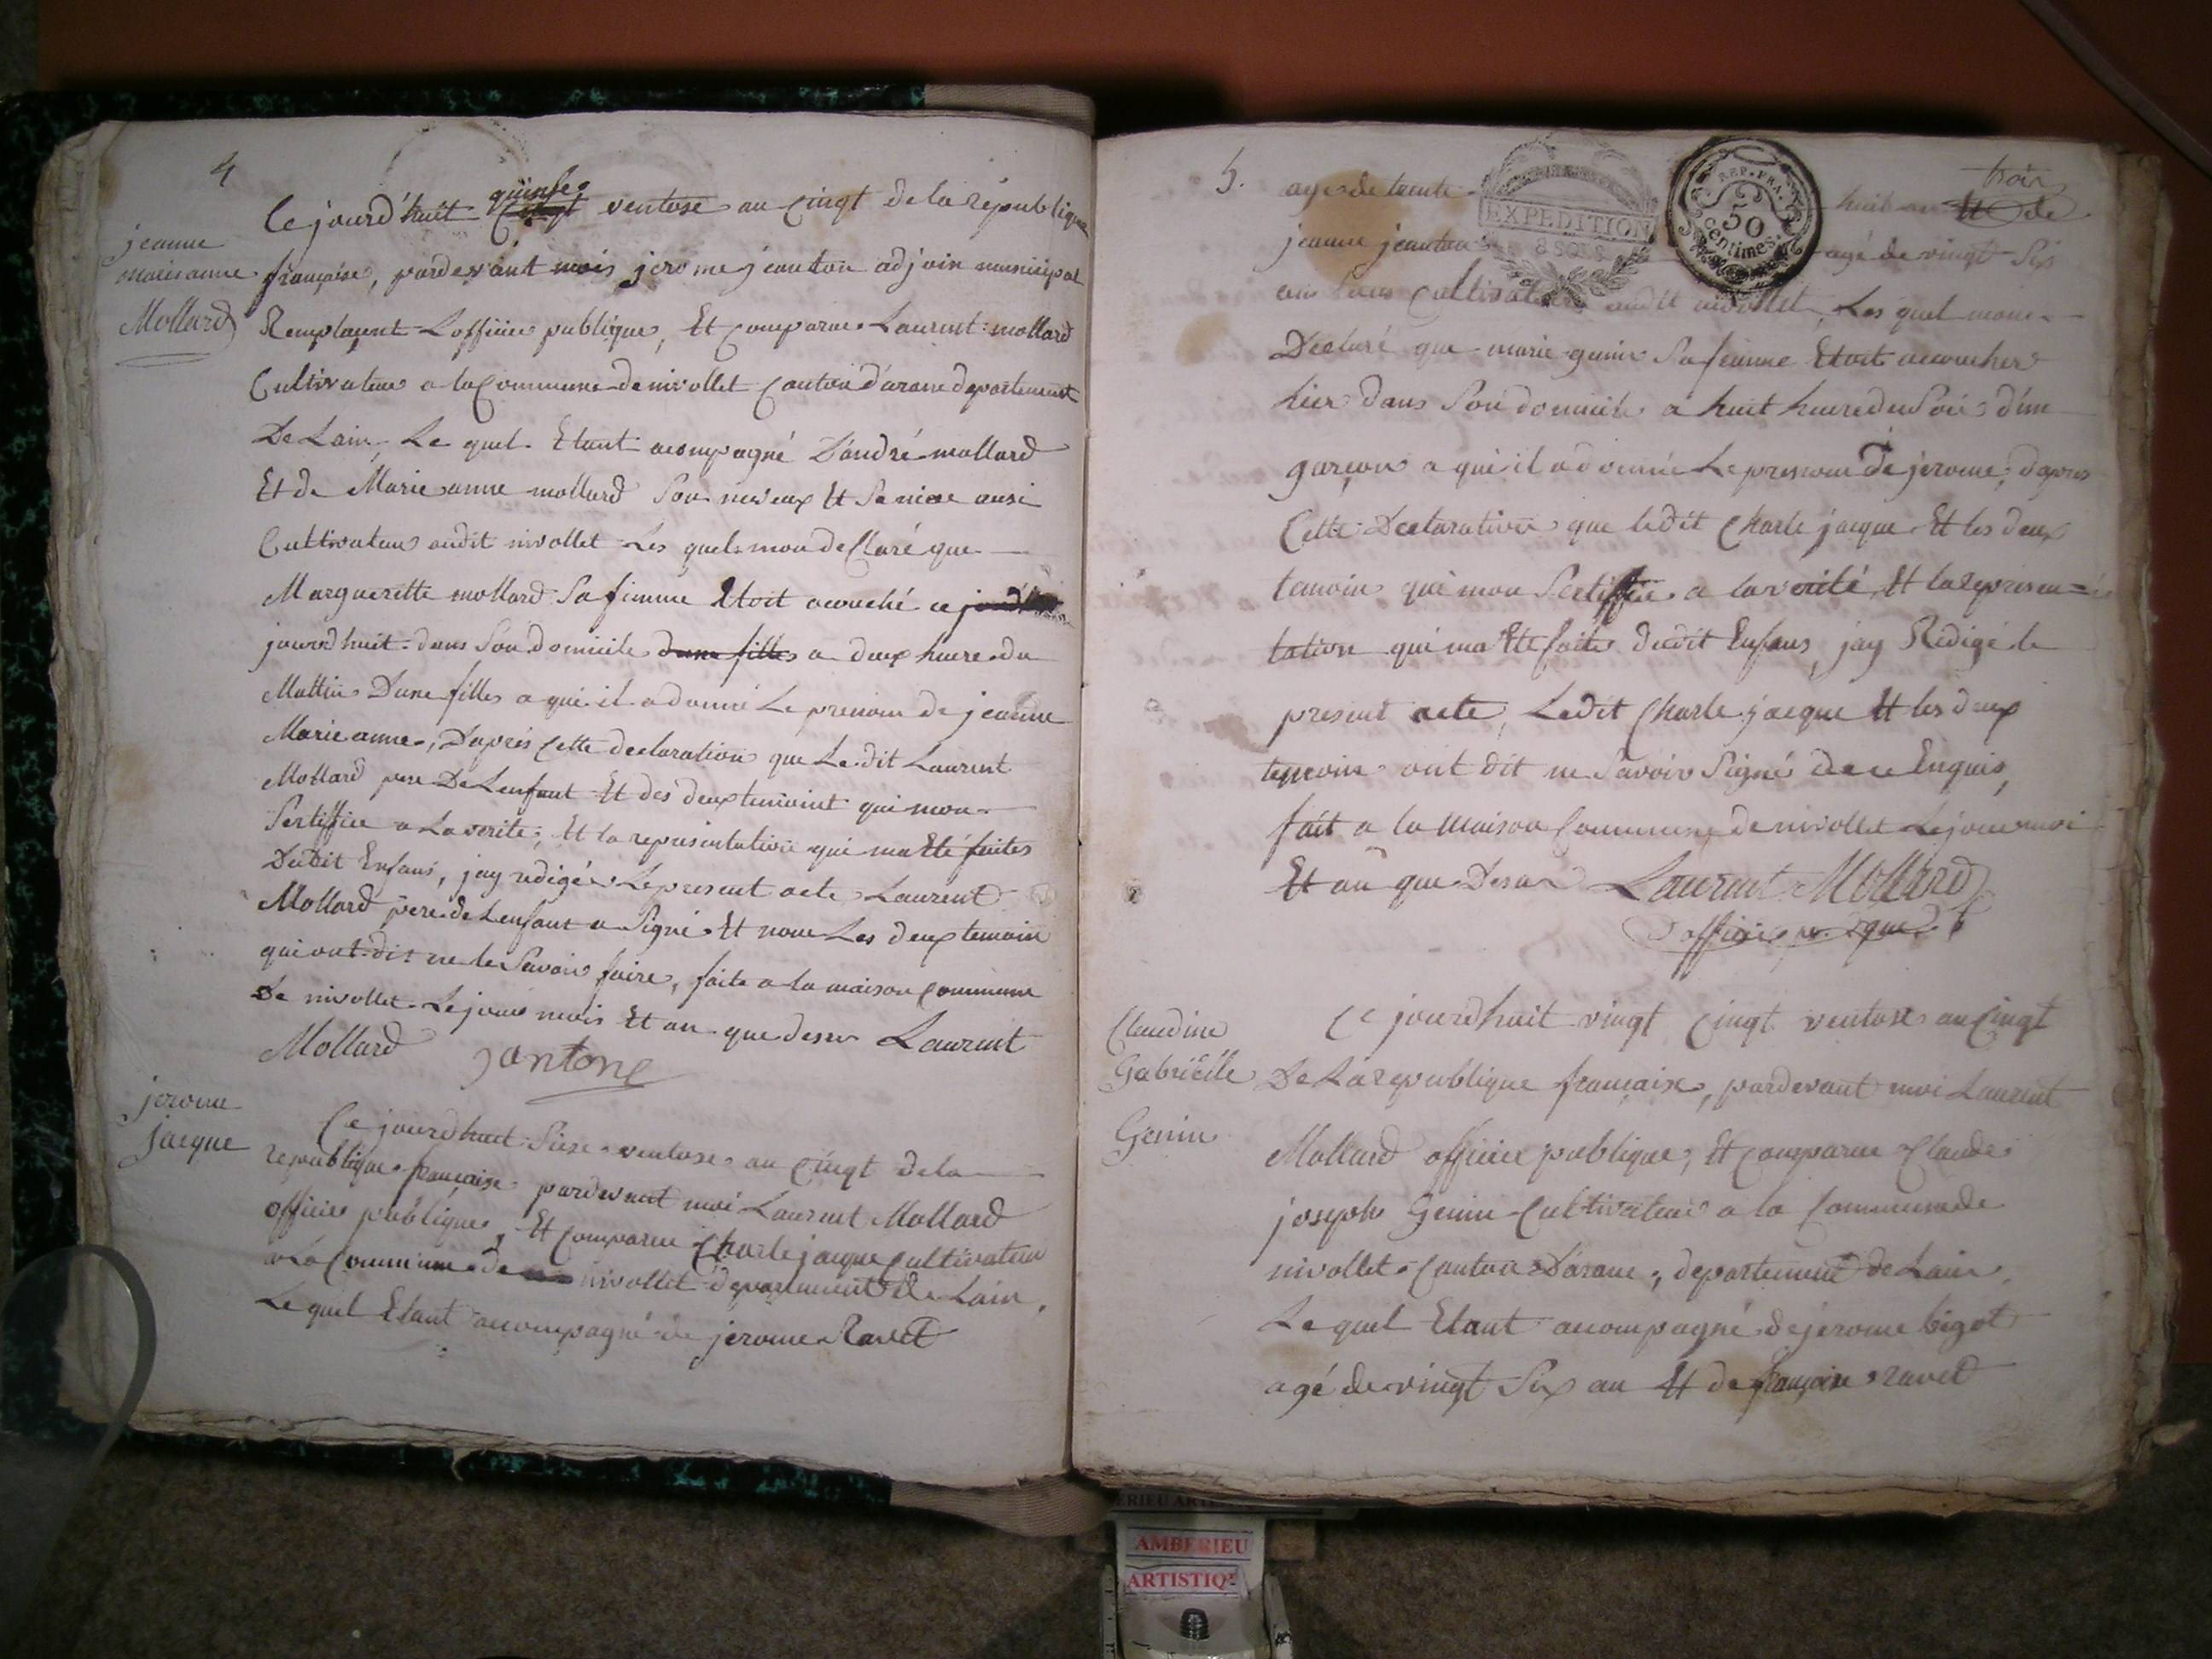 4
Ce jourd'huit quinse ventose an cinqt de la république
jeanne
marie anne
Mollard
française, pardevant mois jerome jeanton adjoin municipal
Remplaçent Lofficier publique, Et comparue Laurent mollard
Cultivateur a la Commune de nivollet canton d'arane departement
De Lain, Le quel Etant acompagné D'andré mollard
Et de Marie anne mollard Son neveux Et Sa niece ausi
Cultivateur audit nivollet Les quels mon declaré que
Marguerette mollard Sa femme Etoit acouché ce
jourdhuit dans Son domicile dune filles a deux heure du
Mattin D'une filles a qui il a donné Le prenom de jeanne
Marie anne, Daprés Cette declaration que Le dit Laurent
Mollard pere De Lenfant Et des deux temoint qui mon
Sertiffiée a La verité; Et la representation qui ma Eté faites
Dudit Enfans, jay redigée Le present acte Laurent
Mollard pere de Lenfant a Signé Et nom Les deux temoin
qui ont dit ne le Savoir faire, faite a la maison commune
De nivollet Le jour mois Et an que desus Laurent
Mollard jantone
jerome
jacque
Ce jourdhuit Sise ventose an cinqt de la
republique française pardevant moi Laurent Mollard
officier publique, Et comparue Charle jacque Cultivateur
a La Commune de nivollet departement de Lain,
Le quel Etant accompagné de jerome Ravet
5.
age de trente huit an Et de
trois
jeanne jeanton agé de vingt Six
an tous Cultivateur audit nivollet, Les quel mon
Declaré que marie genin Sa femme Etoit accoucher
hier dans Son domicile a huit heure du Soir d'un
garçon a qui il a donnée Le prenom de jerome, dapres
Cette Declaration que ledit Charle jacque Et les deux
temoin qui mon Sertiffiée a la verité, Et la represen=
tation qui ma Ete faite dudit Enfans, jay Redigé le
present acte, Ledit Charle jacque Et les deux
temoin ont dit ne Savoir Signé de ce Enquis,
fait a la maison Commune de nivollet Le jour moi
Et an que Desus Laurent Mollard
officier publique
Claudine
Gabrielle
Genin
Ce jourdhuit vingt cinqt ventose an Cinqt
De La republique française, pardevant moi Laurent
Mollard officier publique, Et comparue Claude
joseph Genin Cultivateur a la Commune de
nivollet Canton D'arane, departement de Lain,
Le quel Etant accompagné de jerome bigot
agé de vingt Six an Et de françoise ravet
EXPEDITION
8 SOLS
REP. FRA.
50
Centimes
AMBERIEU
ARTISTIQ